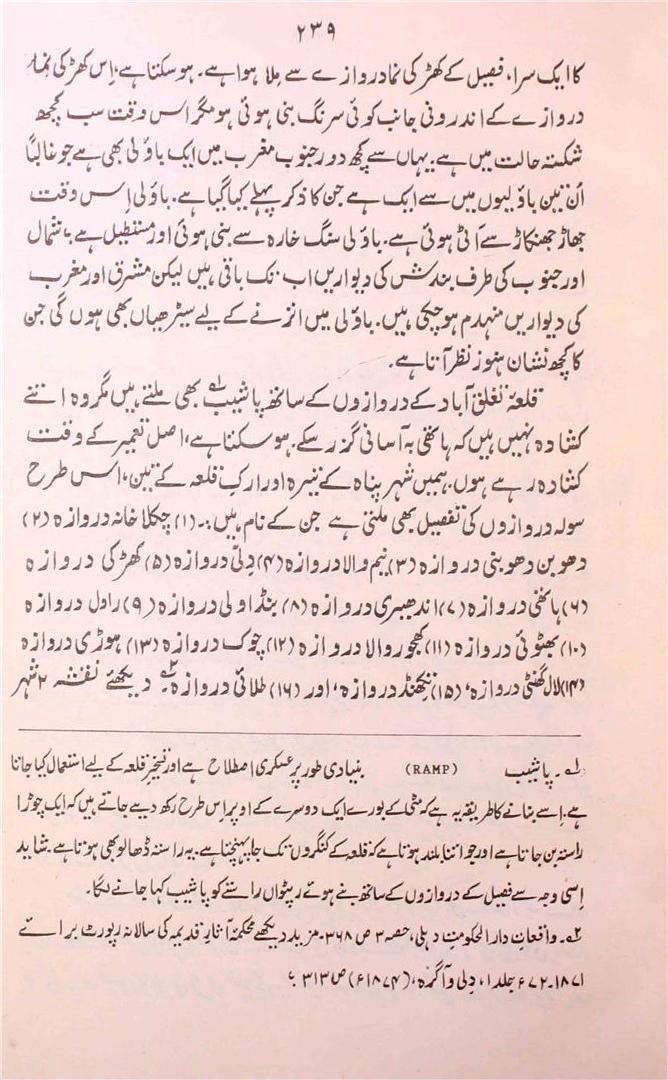 ۲۳۹
کا ایک سرا، فصیل کے کھڑکی نما دروازے سے ملا ہوا ہے۔ ہو سکتا ہے، اِس کھڑکی نما
دروازے کے اندرونی جانب کوئی سرنگ بنی ہوئی ہو مگر اس وقت سب کچھ
شکستہ حالت میں ہے۔ یہاں سے کچھ دور جنوب مغرب میں ایک باؤلی بھی ہے جو غالباً
اُن تین باؤلیوں میں سے ایک ہے جن کا ذکر پہلے کیا گیا ہے۔ باؤلی اِس وقت
جھاڑ جھنکاڑ سے اَٹی ہوئی ہے۔ باؤلی سنگ خارہ سے بنی ہوئی اور مستطیل ہے، شمال
اور جنوب کی طرف بندش کی دیواریں اب تک باقی ہیں لیکن مشرق اور مغرب
کی دیواریں منہدم ہو چکی ہیں۔ باؤلی میں اترنے کے لیے سیڑھیاں بھی ہوں گی جن
کا کچھ نشان ہنوز نظر آتا ہے۔
قلعہٴ تغلق آباد کے دروازوں کے ساتھ پاشیب۱؎ بھی ملتے ہیں مگر وہ اتنے
کشادہ نہیں ہیں کہ ہاتھی بہ آسانی گزر سکے۔ ہو سکتا ہے، اصل تعمیر کے وقت
کشادہ رہے ہوں۔ ہمیں شہر پناہ کے تیرہ اور ارکِ قلعہ کے تین، اس طرح
سولہ دروازوں کی تفصیل بھی ملتی ہے جن کے نام ہیں:۔ (۱) چکلا خانہ دروازہ (۲)
دھوبن دھوبنی دروازہ (۳) نیم والا دروازہ (۴) دِلّی دروازہ (۵) کھڑکی دروازہ
(۶) ہاتھی دروازہ (۷) اندھیری دروازہ (۸) بنڈاولی دروازہ (۹) راول دروازہ
(۱۰) بھٹوئی دروازہ (۱۱) کھجور والا دروازہ (۱۲) چوک دروازہ (۱۳) ہوڑی دروازہ
(۱۴) لال گھنٹی دروازہ، (۱۵) تکھنڈ دروازہ، اور (۱۶) طلائی دروازہ۲؎۔ دیکھئے نقشہ ۲ شہر
۱؎۔ پاشیب (RAMP) بنیادی طور پر عسکری اصطلاح ہے اور تسخیرِ قلعہ کے لیے استعمال کیا جاتا
ہے۔ اِسے بنانے کا طریقہ یہ ہے کہ مٹی کے بورے ایک دوسرے کے اوپر اِس طرح رکھ دیے جاتے ہیں کہ ایک چوڑا
راستہ بن جاتا ہے اور جو اتنا بلند ہوتا ہے کہ قلعہ کے کنگروں تک جا پہنچتا ہے۔ یہ راستہ ڈھالو بھی ہوتا ہے۔ شاید
اِسی وجہ سے فصیل کے دروازوں کے ساتھ بنے ہوئے رپٹواں راستے کو پاشیب کہا جانے لگا۔
۲؎۔ واقعات دارالحکومت دہلی، حصہ ۳ ص ۳۶۸۔ مزید دیکھے محکمۂ آثارِ قدیمہ کی سالانہ رپورٹ برائے
۱۸۷۱۔۷۲ء جلد ۱، دِلی و آگرہ، (۱۸۷۴ء) ص ۳۱۳